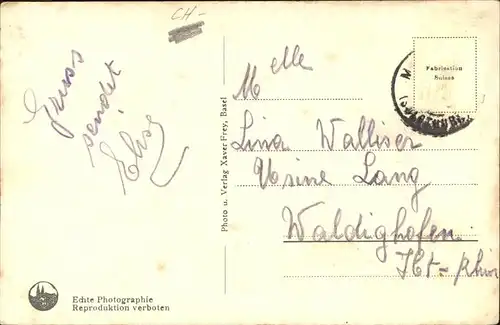 CH-
Gruss
sendet
Elise
Photo u. Verlag Xaver Frey, Basel
Echte Photographie
Reproduktion verboten
Fabrication
Suisse
Melle
Lina Walliser
Usine Lang
Waldighofen
Ht-Rhin